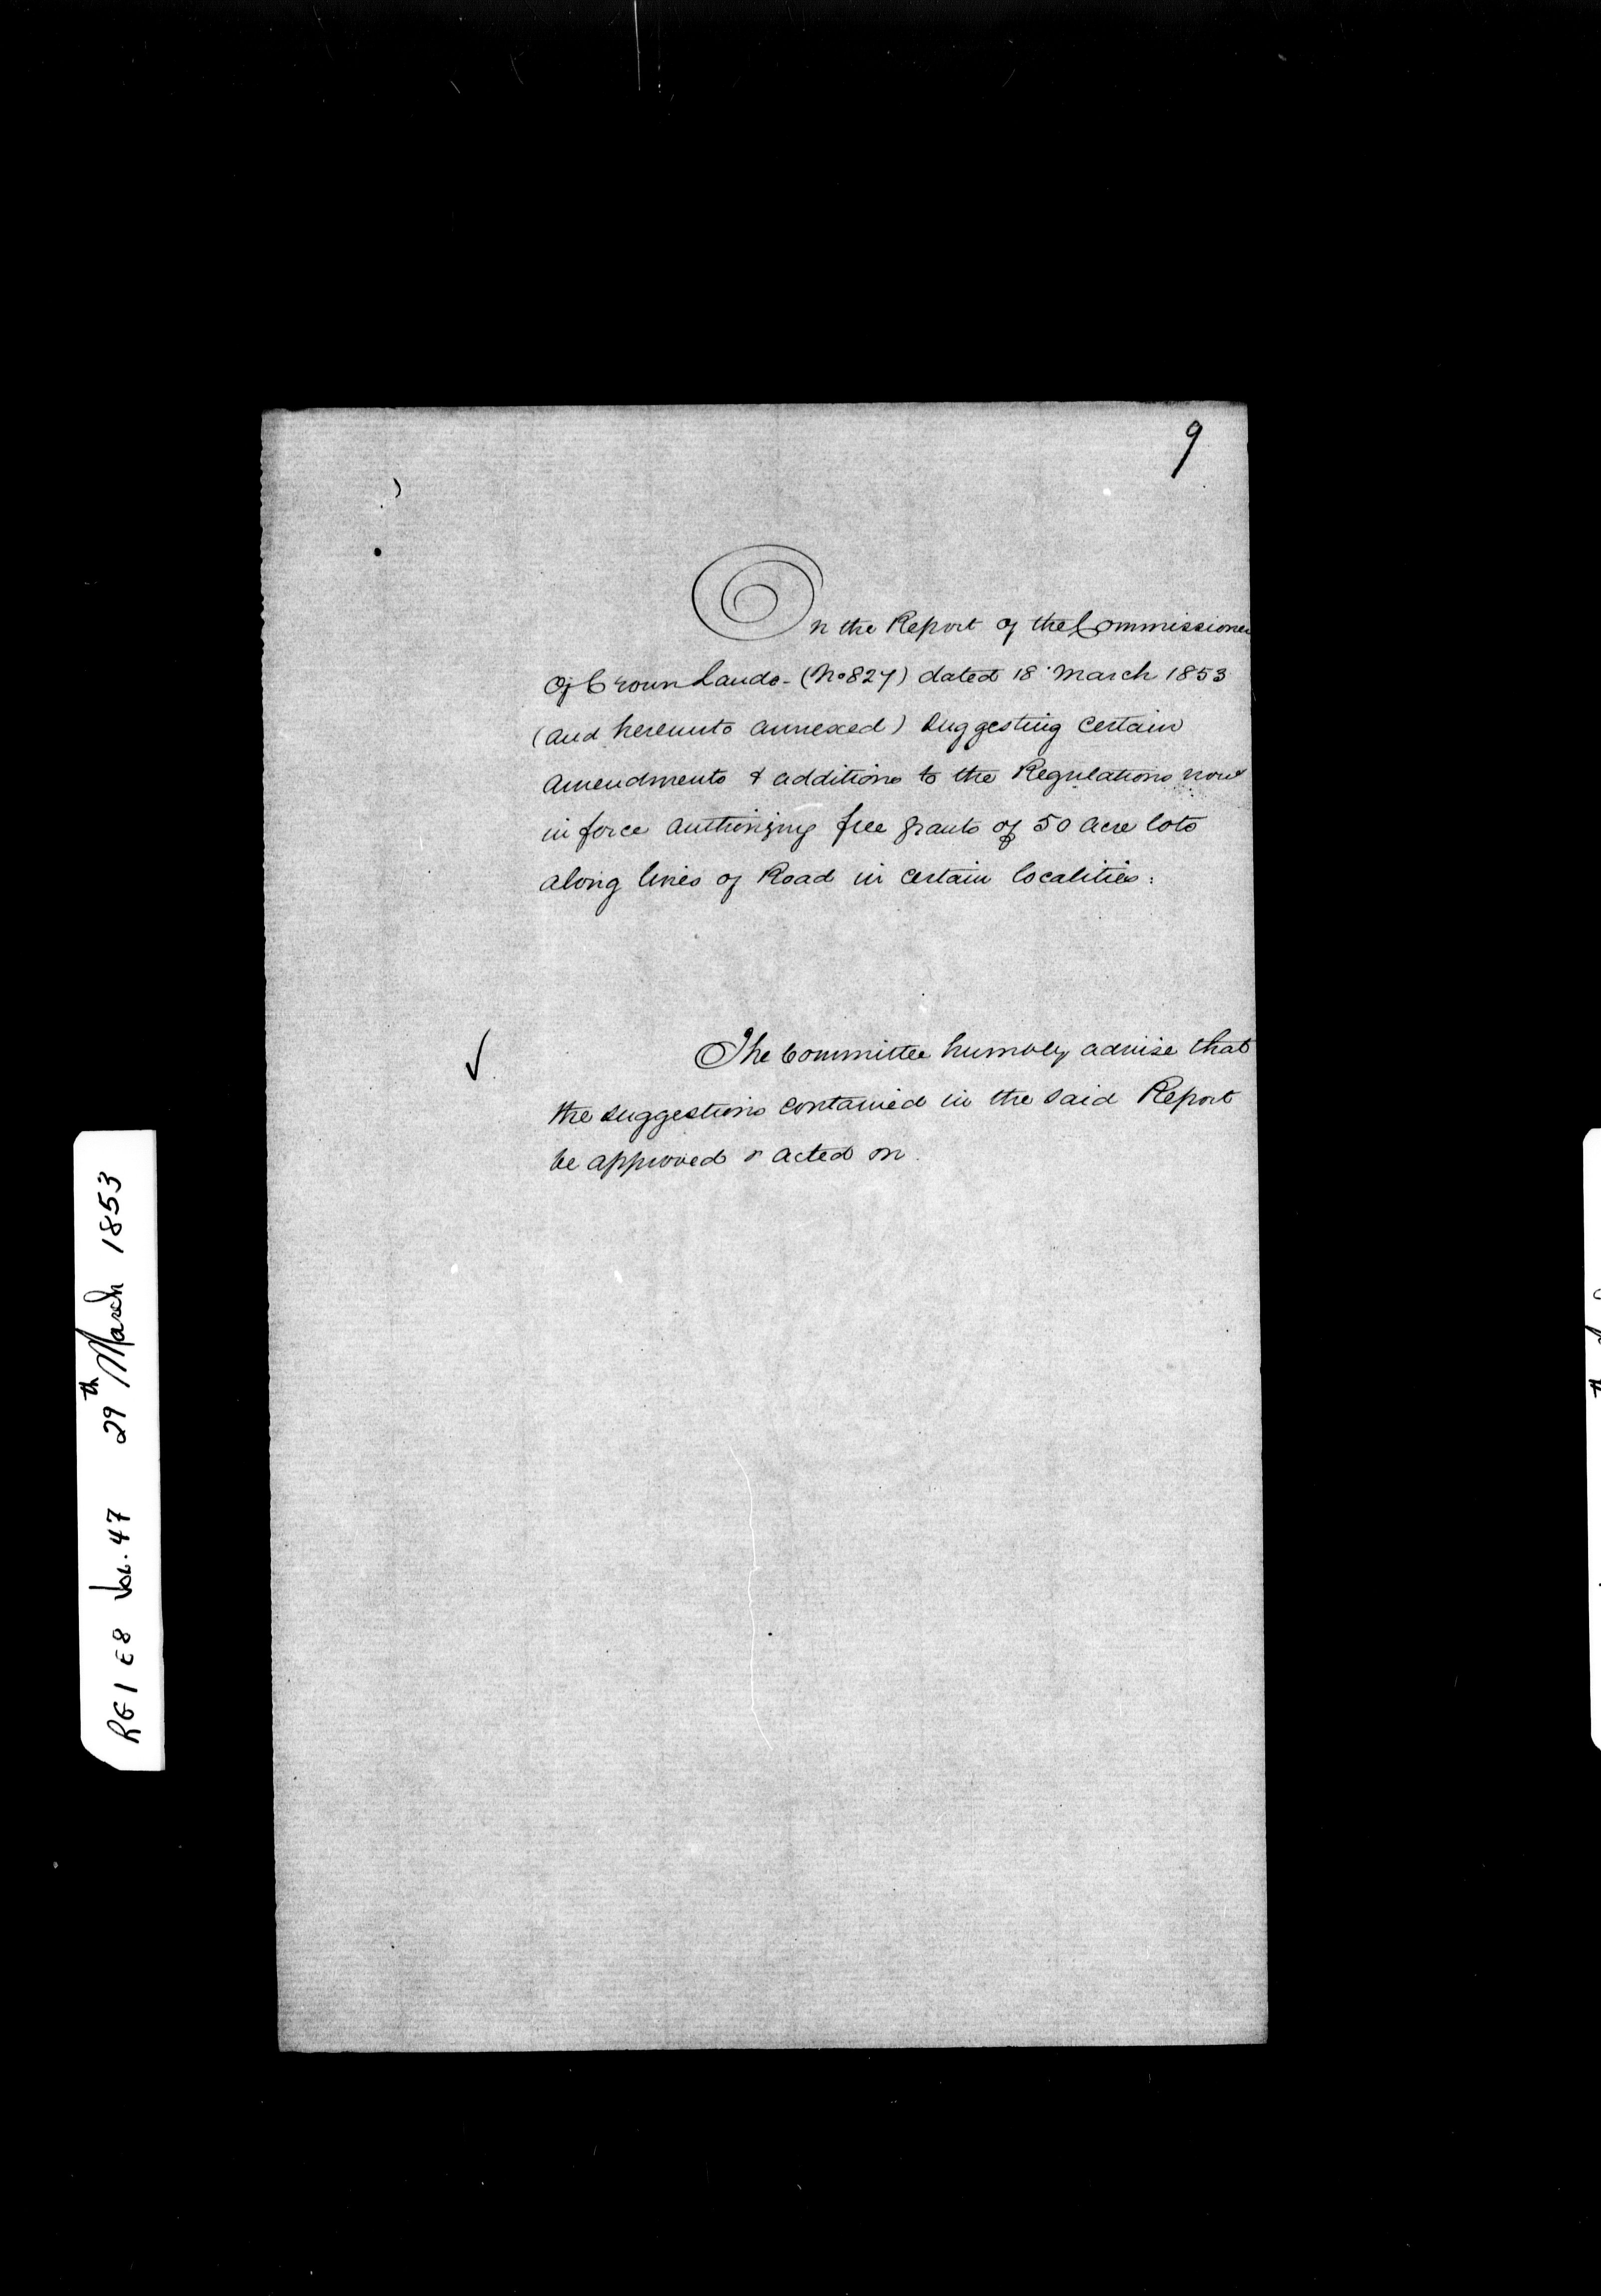 9
On the Report of the Commissioner
Of Crown Lands - (No 827) dated 18 March 1853
(and hereunto annexed) suggesting certain
amendments & additions to the Regulations now
in force authorizing free grants of 50 acre lots
along lines of Road in certain localities:
The Committee humbly advise that
the suggestions contained in the said Report
be approved & acted on.
RG1 E8 Vol. 47 29th March 1853